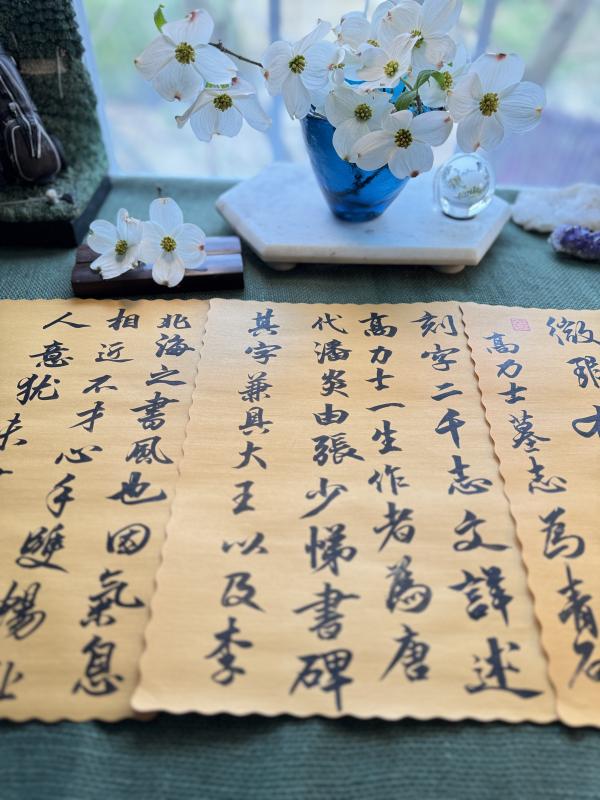 微瑕
高力士墓志為青石
刻字二千志文詳述
高力士一生作者為唐
代潘炎由張少悌書碑
其字兼具大王以及李
北海之書風也因氣息
相近不才心手雙暢
人意猶未